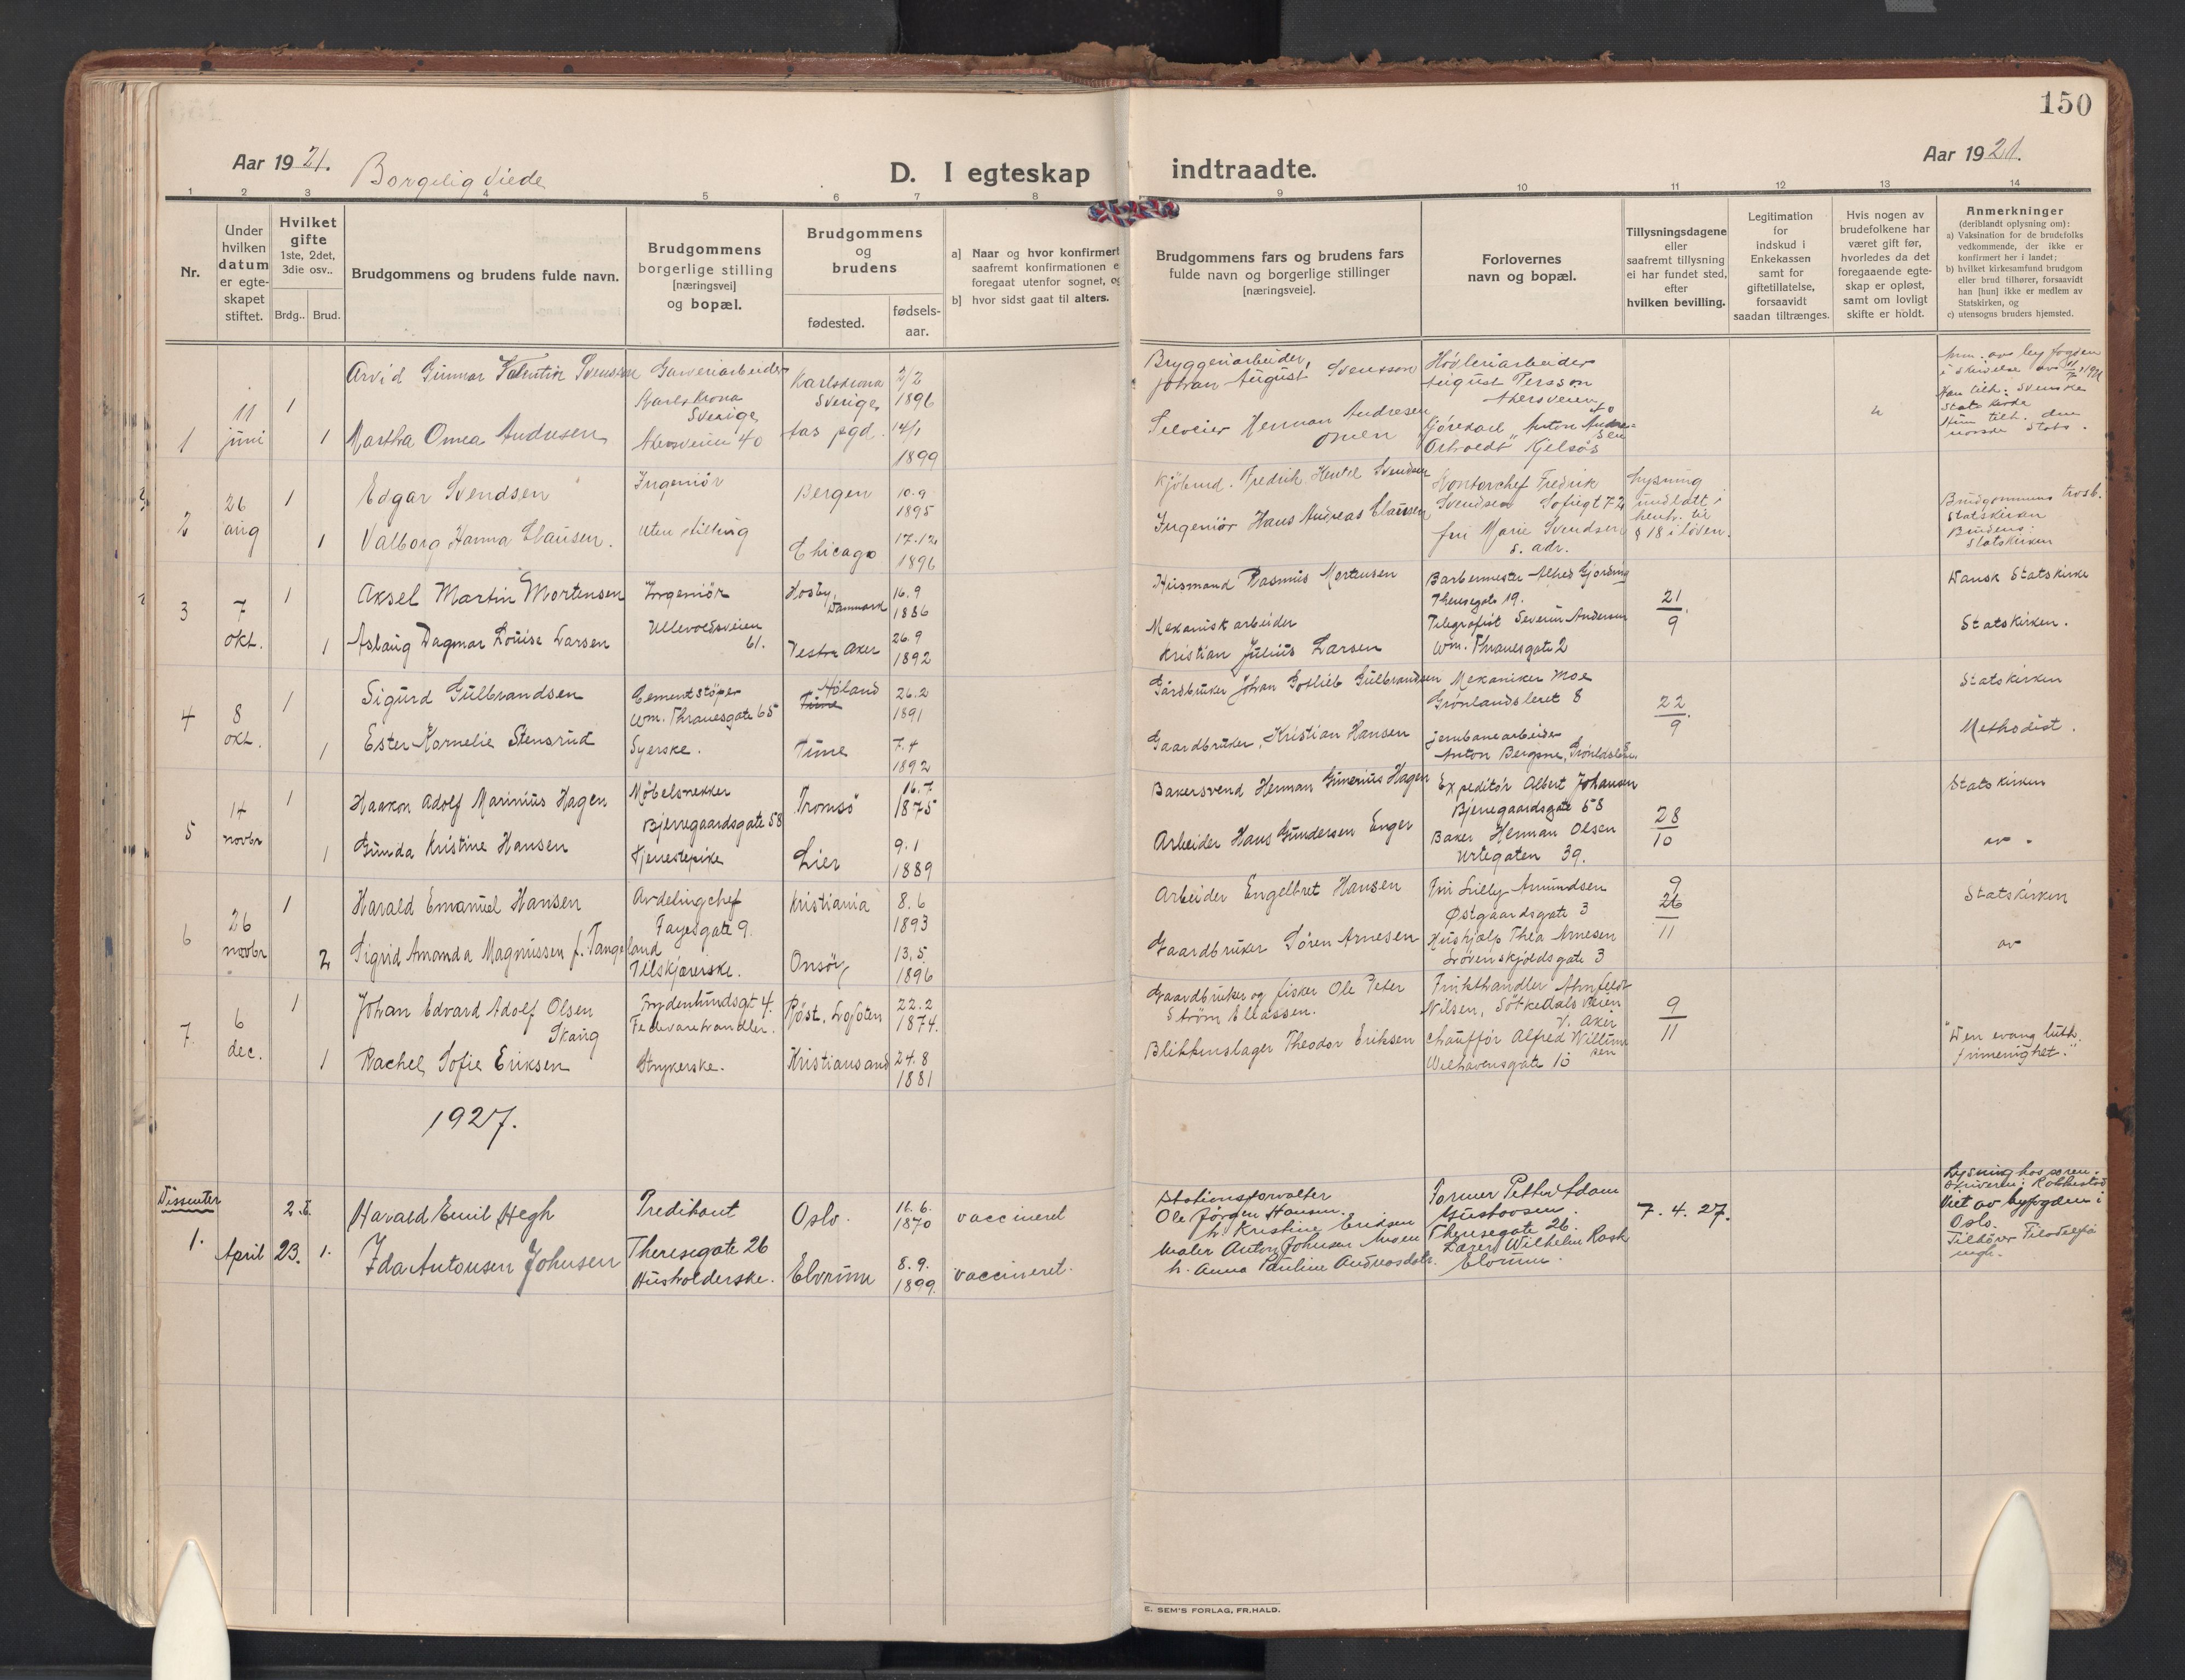 150
Aar 1921.
Borgelig viede
D. I egteskap indtraadte.
Aar 1921.
1 2 3 4 5 6 7 8 9 10 11 12 13 14
Nr.
Under
hvilken
datum
er egte-
skapet
stiftet.
Hvilket
gifte
1ste, 2det,
3die osv..
Brdg.. Brud.
Brudgommens og brudens fulde navn.
Brudgommens
borgerlige stilling
[næringsvei]
og bopæl.
Brudgommens
og
brudens
fødested.
fødsels-
aar.
a] Naar og hvor konfirmert
saafremt konfirmationen e
foregaat utenfor sognet, og
b] hvor sidst gaat til alters.
Brudgommens fars og brudens fars
fulde navn og borgerlige stillinger
[næringsveie].
Forlovernes
navn og bopæl.
Tillysningsdagene
eller
saafremt tillysning
ei har fundet sted,
efter
hvilken bevilling.
Legitimation
for
indskud i
Enkekassen
samt for
giftetillatelse,
forsaavidt
saadan tiltrænges.
Hvis nogen av
brudefolkene har
været gift før,
hvorledes da det
foregaaende egte-
skap er opløst,
samt om lovligt
skifte er holdt.
Anmerkninger
(deriblandt oplysning om):
a) Vaksination for de brudefolks
vedkommende, der ikke er
konfirmert her i landet;
b) hvilket kirkesamfund brudgom
eller brud tilhører, forsaavidt
han [hun] ikke er medlem av
Statskirken, og
c) utensogns bruders hjemsted.
1
11
juni
1
Arvid Gunnar Valentin Svensson
Garveriarbeider
Karlskrona
Sverige
Karlskrona
Sverige
2/2
1896
Bryggeriarbeider
Johan August Svensson
Høvleriarbeider
August Persson
Akersveien 40
1
Martha Omea Andresen
Akersveien 40
Aas pgd.
14/1
1899
Selveier Herman Andresen
Omen
Gjøredarl Anton Andre-
sen
Kjelsås
Han tilh. Svenske
Stats kirke
Hun tilh. den
norske Stats.
2
26
aug
1
Edgar Svendsen
Ingeniør
Bergen
10.9
1895
Kjøbmd. Fredrik Hentel Svendsen
Kontorchef Fredrik
Svendsen Sofiegt 72
Lysning
undlatt i
henh. til
§ 18 i loven.
Brudgommens trosb.
Statskirken
1
Valborg Hanna Clausen.
Uten stilling
Chicago
17.12
1896
Ingeniør Hans Andreas Clausen
fru Marie Svendsen
s. adr.
Brudens:
Statskirken
3
7
okt.
1
Aksel Martin Mortensen
Ingeniør
Ullevoldsveien
61.
Hosby,
Danmark
16.9
1886
Husmand Rasmus Mortensen
Barbermester Alfred Gjording
Theresegate 19.
21
9
Dansk Statskirke
1
Aslaug Dagmar Louise Larsen
Vestre Aker
26.9
1892
Mekanisk arbeider
Kristian Julius Larsen
Telegrafist Severin Andersen
Wm. Thranesgate 2
Statskirken.
4
8
okt.
1
Sigurd Gulbrandsen
Cementstøper
Wm. Thranesgate 65
Høland
Time
26.2
1891
Gårdbruker Johan Gotlieb Gulbrandsen
Mekaniker Moe
Grønlandsleret 8
22
9
Statskirken
1
Ester Kornelie Stensrud
Syerske.
Time
7.4
1892
Gaardbruker, Kristian Hansen
Jernbanearbeider
Anton Bergsne,
Methodist.
5
14
novbr
1
Haakon Adolf Marinius Hagen
Møbelsnekker
Bjerregaardsgate 58
Tromsø
16.7
1875
Bakersvend Herman Gunerius Hagen
Expeditør Albert Johansen
Bjerregaardsgate 58
28
10
Statskirken
1
Gunda Kristine Hansen
Tjenestepike
Lier
9.1
1889
Arbeider Hans Gundersen Enger
Baker Herman Olsen
Urtegaten 39.
6
26
novbr
1
Harald Emanuel Hansen
Avdelingchef
Fayesgate 9.
Kristiania
8.6
1893
Arbeider Engelbret Hansen
Fru Lilly Amundsen
Østgaardsgate 3
9
26
11
Statskirken
2
Sigrid Amanda Magnussen f. Tangeland
Tilskjærerske.
Onsøy
13.5
1896
Gaardbruker Søren Arnesen
Hushjælp Thea Arnesen
Løvenskjoldsgate 3
7
6
dec.
1
Johan Edvard Adolf Olsen
Skaug
Frydenlundsgt 4.
Fedevarehandler.
Røst, Lofoten
22.2
1874.
Gaardbruker og fisker Ole Peter
Strøm Eliassen.
Frukthandler Ahnfeldt
Nilsen, Sørkedalsveien
V. Aker
9
11
1
Rachel Sofie Eriksen
Strykerske.
Kristiansand
24.8
1881
Blikkenslager Theodor Eriksen
Chauffør Alfred Willum
sen
Welhavensgate 10
"Den evang luth.
frimenighet."
1927.
Dissenter
1.
April 23.
2.
Harald Emil Hegh
Predikant
Theresegate 26
Oslo.
16.6.
1870
vaccineret
Stationsforvalter
Ole Jørgen Hansen.
h. Kristine Eriksen
Former Petter Adam
Gustavsen.
Theresegate 26.
7.4.27.
Lysning hos soren-
skriveren i
Viet av byfogden i
Oslo.
Tilhører Filadelfia
mgh.
1.
Ida Antonsen Johnsen
Husholderske.
Elvrum
8.9.
1899.
vaccineret.
Maler Anton Johnsen
h. Anna Pauline Andreasdotr.
Lærer Wilhelm Rask
Elvrum.
E. SEM'S FORLAG, FR.HALD.